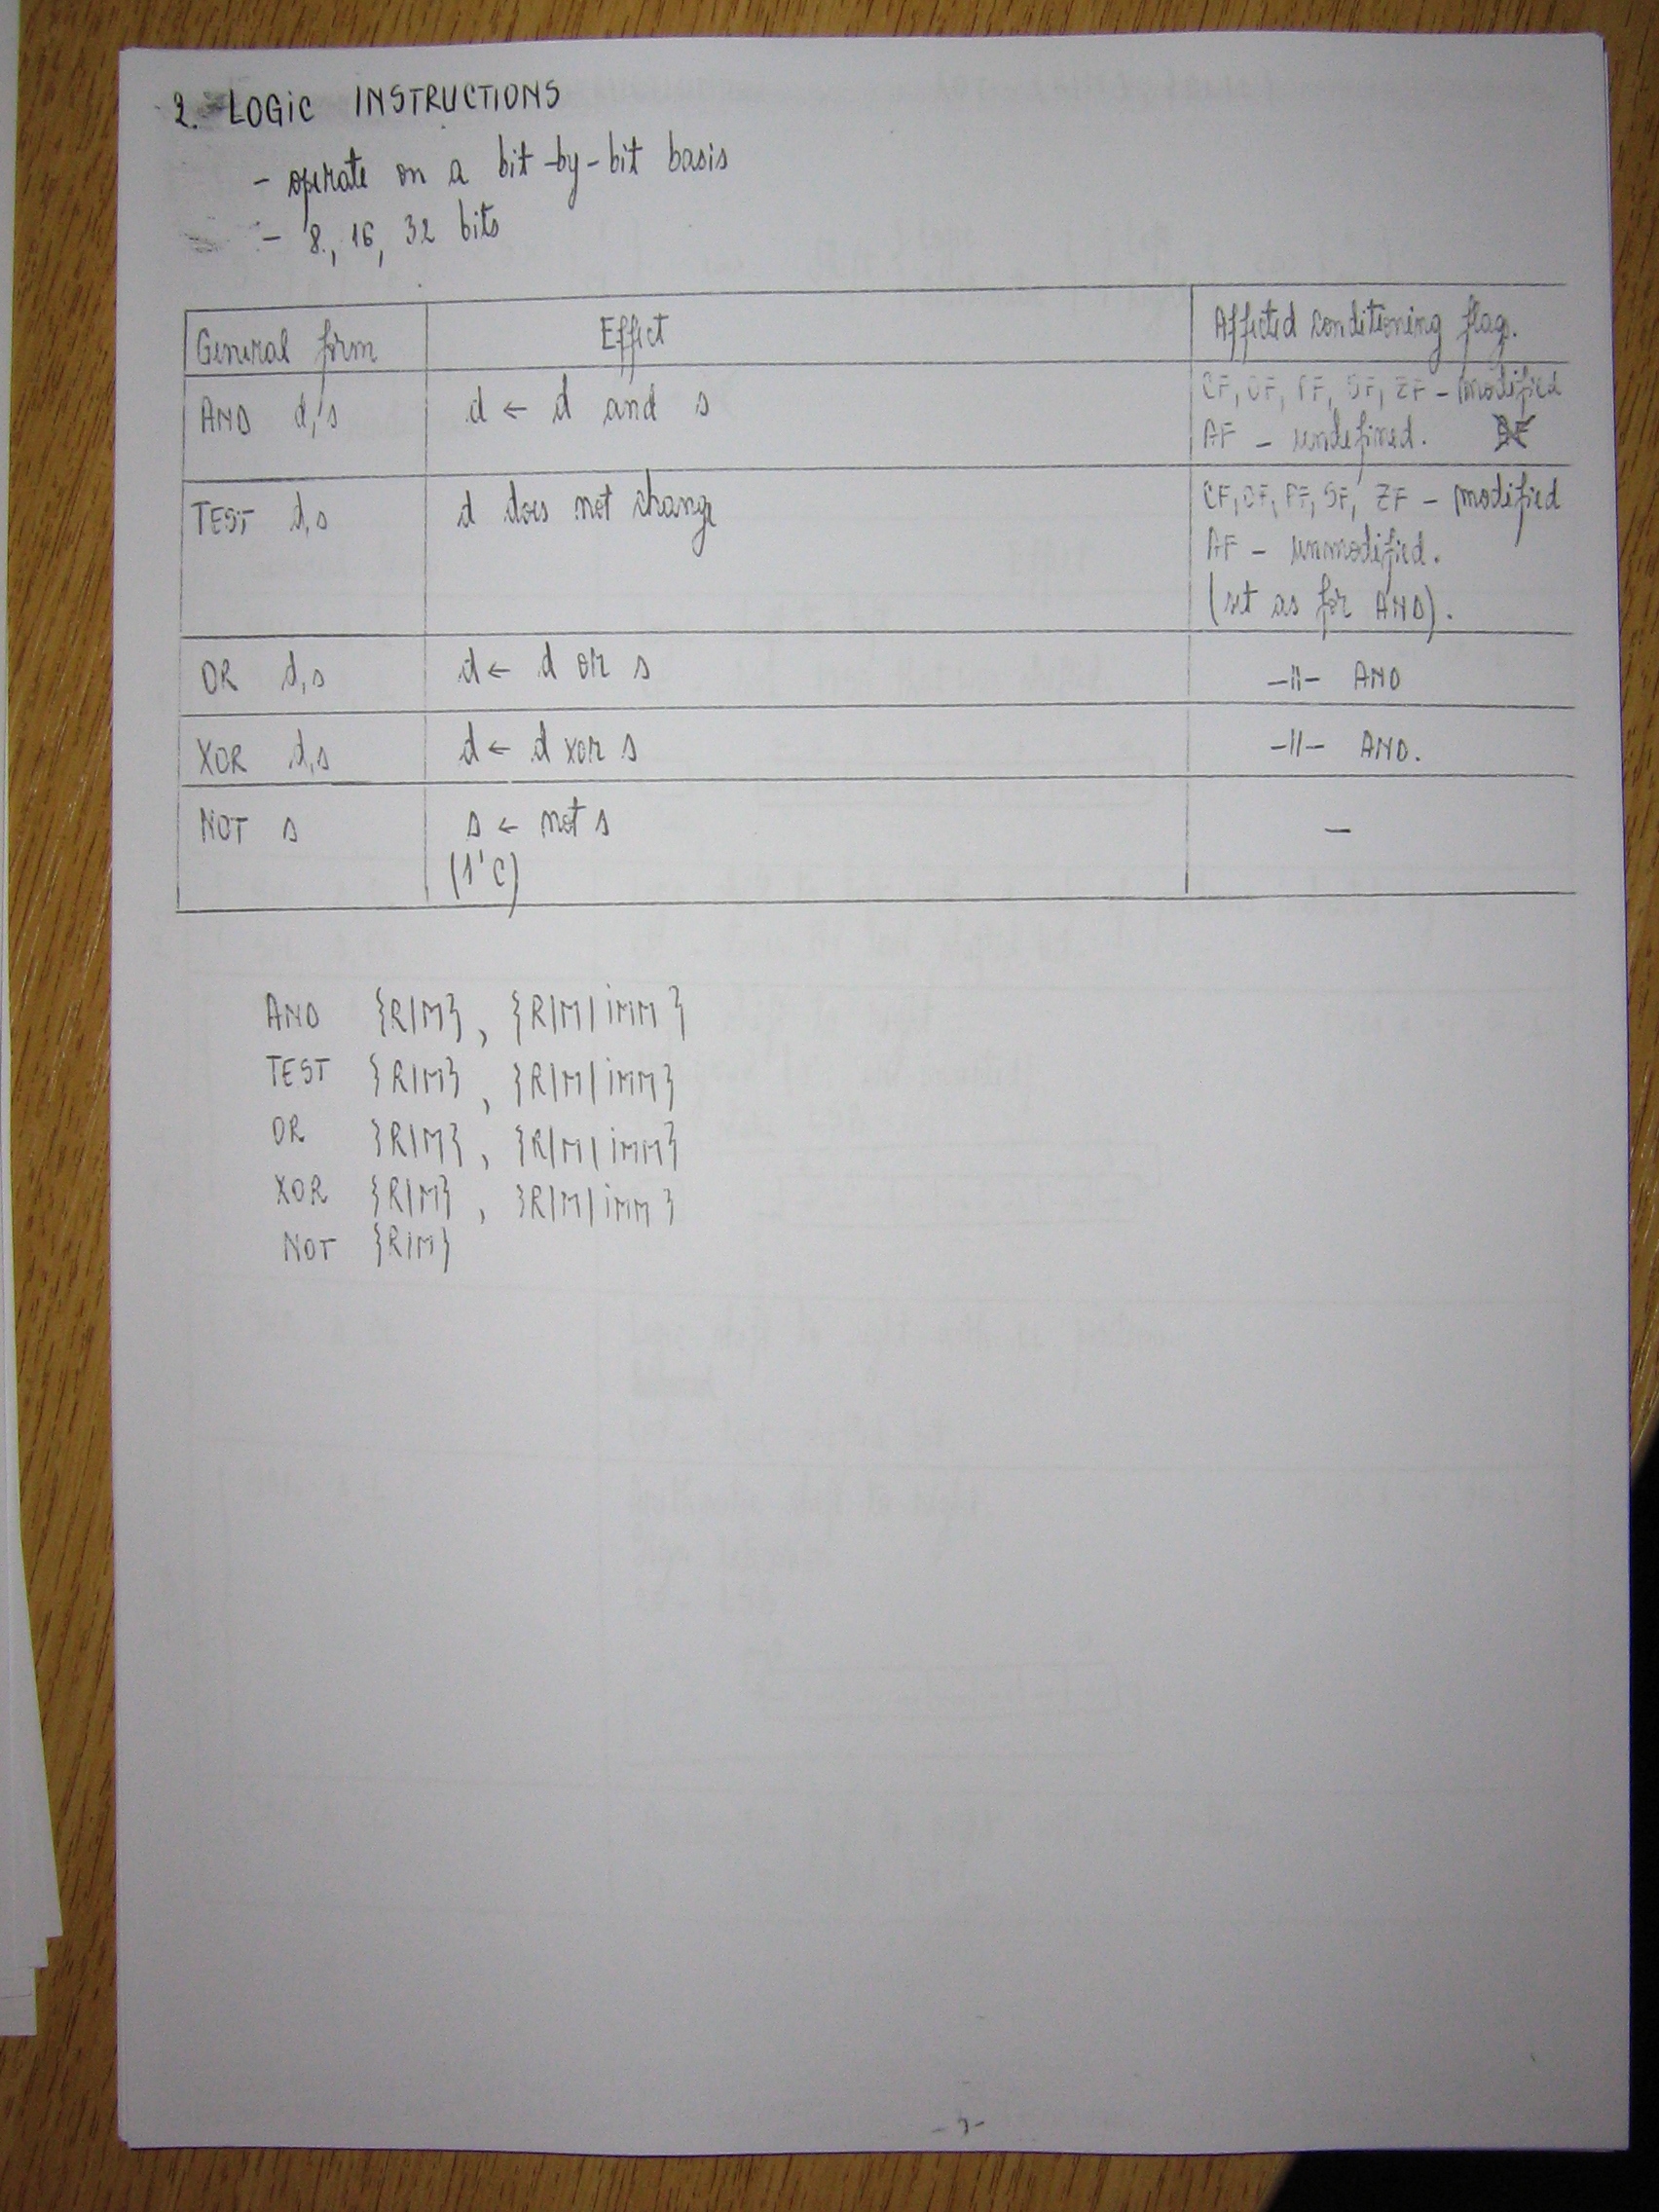 2. LOGIC INSTRUCTIONS
- operate on a bit-by-bit basis
- 8, 16, 32 bits
General form Effect Affected conditioning flag.
AND d,s d ← d and s CF, OF, PF, SF, ZF - modified
AF - undefined.
TEST d,s d does not change CF, OF, PF, SF, ZF - modified
AF - unmodified.
(set as for AND).
OR d,s d ← d or s -||- AND
XOR d,s d ← d xor s -||- AND.
NOT s s ← not s -
(1'C)
AND {R|M}, {R|M|imm}
TEST {R|M}, {R|M|imm}
OR {R|M}, {R|M|imm}
XOR {R|M}, {R|M|imm}
NOT {R|M}